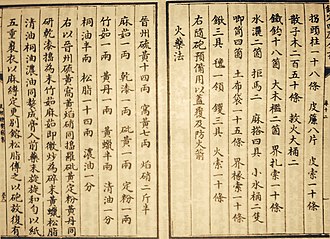 拐頭柱一十八條 皮簾八片 皮索一十條
散子木二百五十條 救火大桶二
鐵鈎十八箇 大木檑二箇 界扎索一十條
水濃二箇 拒馬二 麻搭四具 小水桶二隻
唧筒四箇 土布袋一十五條 界椽索一十條
鍬三具 氊一領 钁三具 火索一十條
右隨砲預備用以蓋覆及防火箭
火藥法
晉州硫黃十四兩 窩黃七兩 焰硝二斤半
麻茹一兩 乾漆一兩 砒黃一兩 定粉一兩
竹茹一兩 黃丹一兩 黃蠟半兩 清油一分
桐油半兩 松脂一十四兩 濃油一分
右以晉州硫黃窩黃焰硝同搗羅砒黃定粉黃丹同
研乾漆搗為末竹茹麻茹即微炒為碎末黃蠟松脂
清油桐油濃油同熬成膏入前藥末旋旋和勻以紙
五重裹衣以麻縛定更別鎔松脂傅之以砲放復有